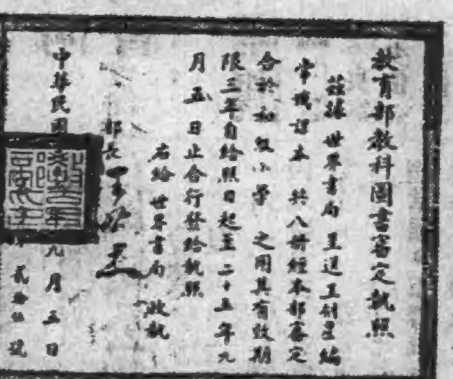 教育部教科圖書審定執照
茲據 世界書局 王 編
常識課本 共八冊經本部審定
合於初級小學 之用其有效期
限三年自給照日起至二十五年九
月五日止合行發給執照
右給世界書局 收執
部長王世杰
中華民國 九月五日
貳拾伍號